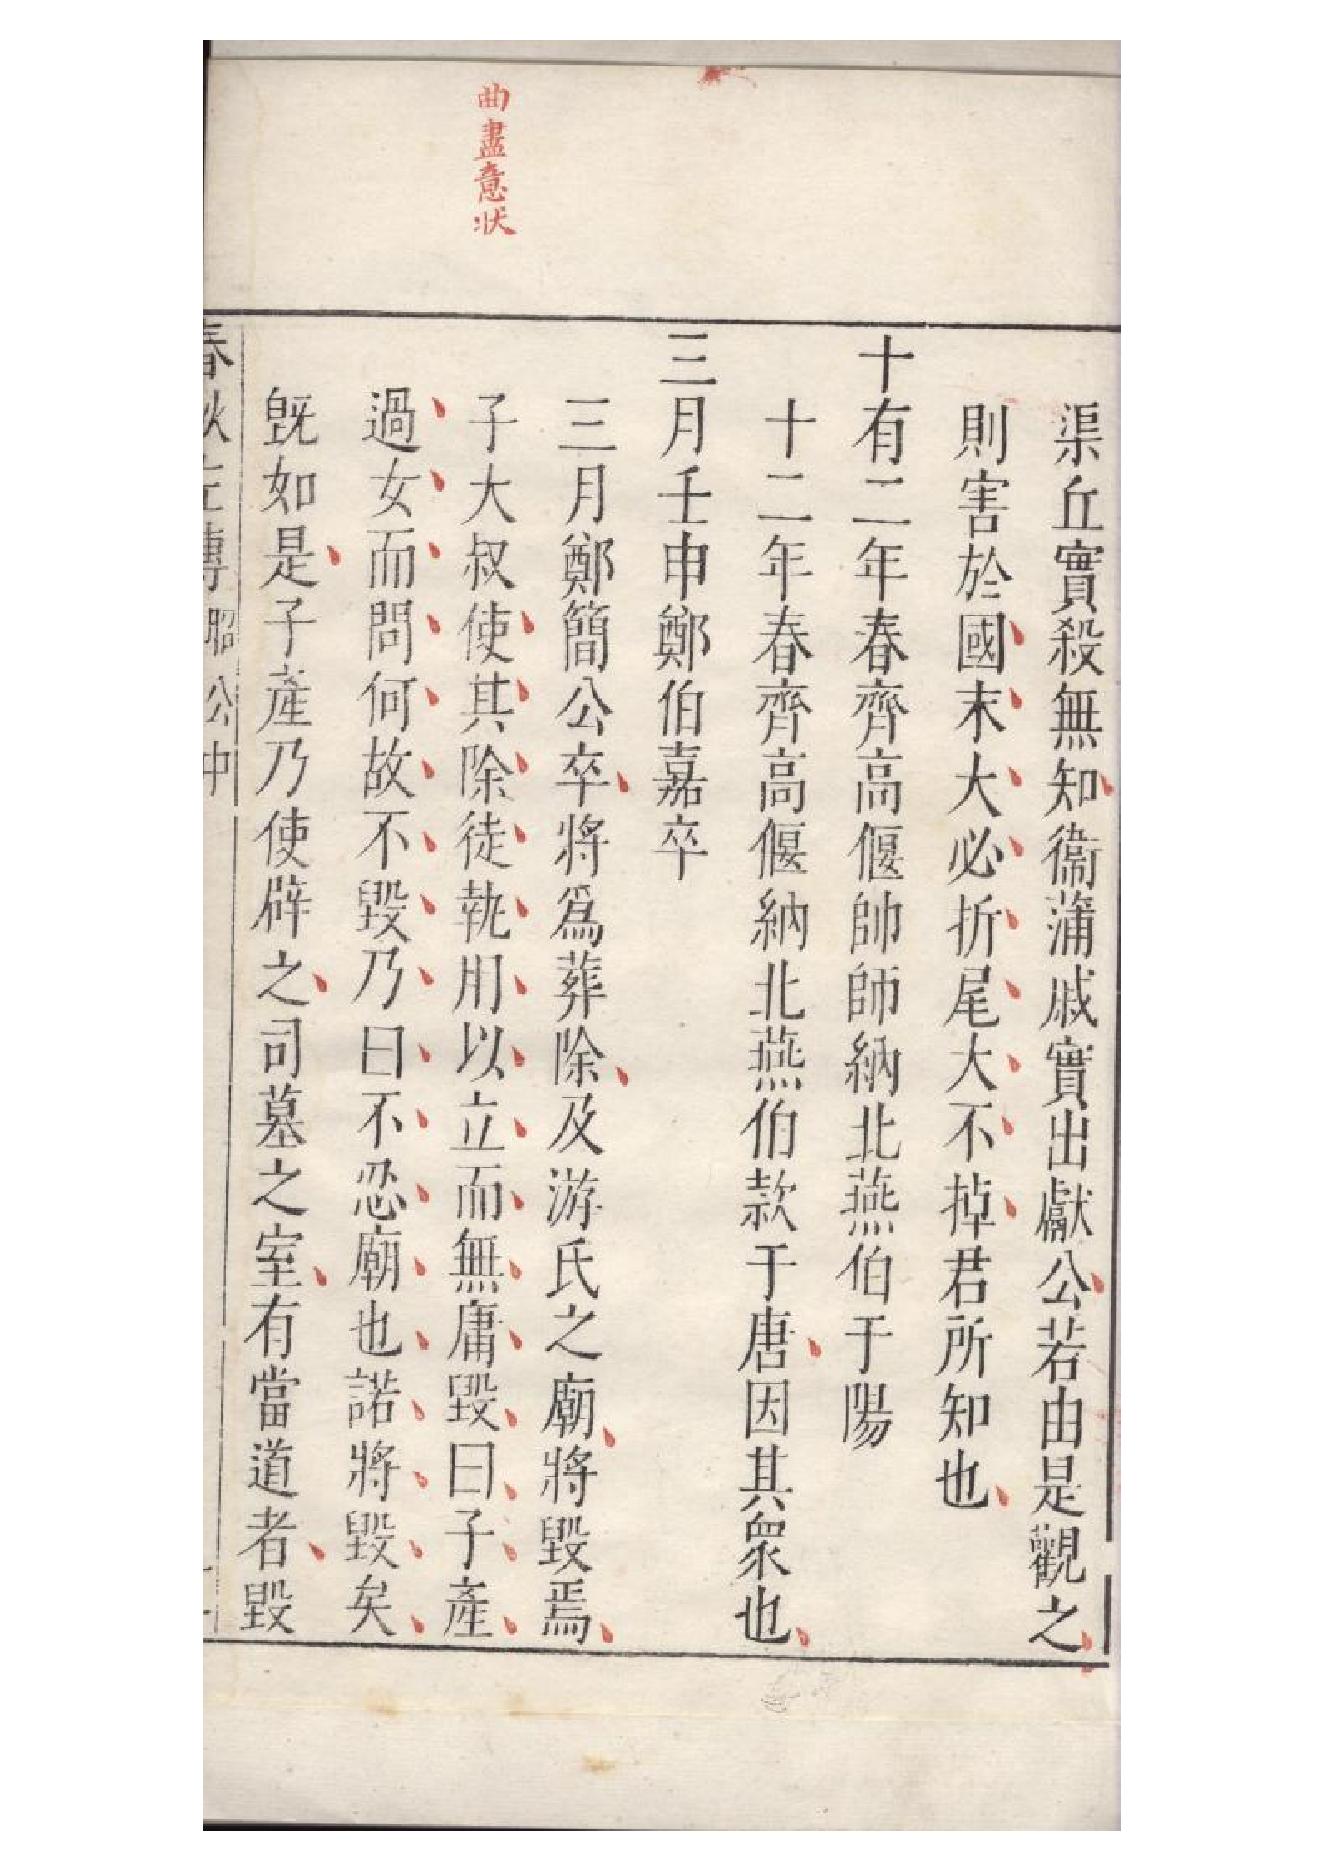 渠丘實殺無知衞蒲戚實出獻公若由是觀之
則害於國末大必折尾大不掉君所知也
十有二年春齊高偃帥師納北燕伯于陽
十二年春齊高偃納北燕伯款于唐因其衆也
三月壬申鄭伯嘉卒
三月鄭簡公卒將爲葬除及游氏之廟將毀焉
曲盡意狀
子大叔使其除徒執用以立而無庸毀曰子產
過女而問何故不毀乃曰不忍廟也諾將毀矣
旣如是子產乃使辟之司墓之室有當道者毀
春秋左傳昭公中